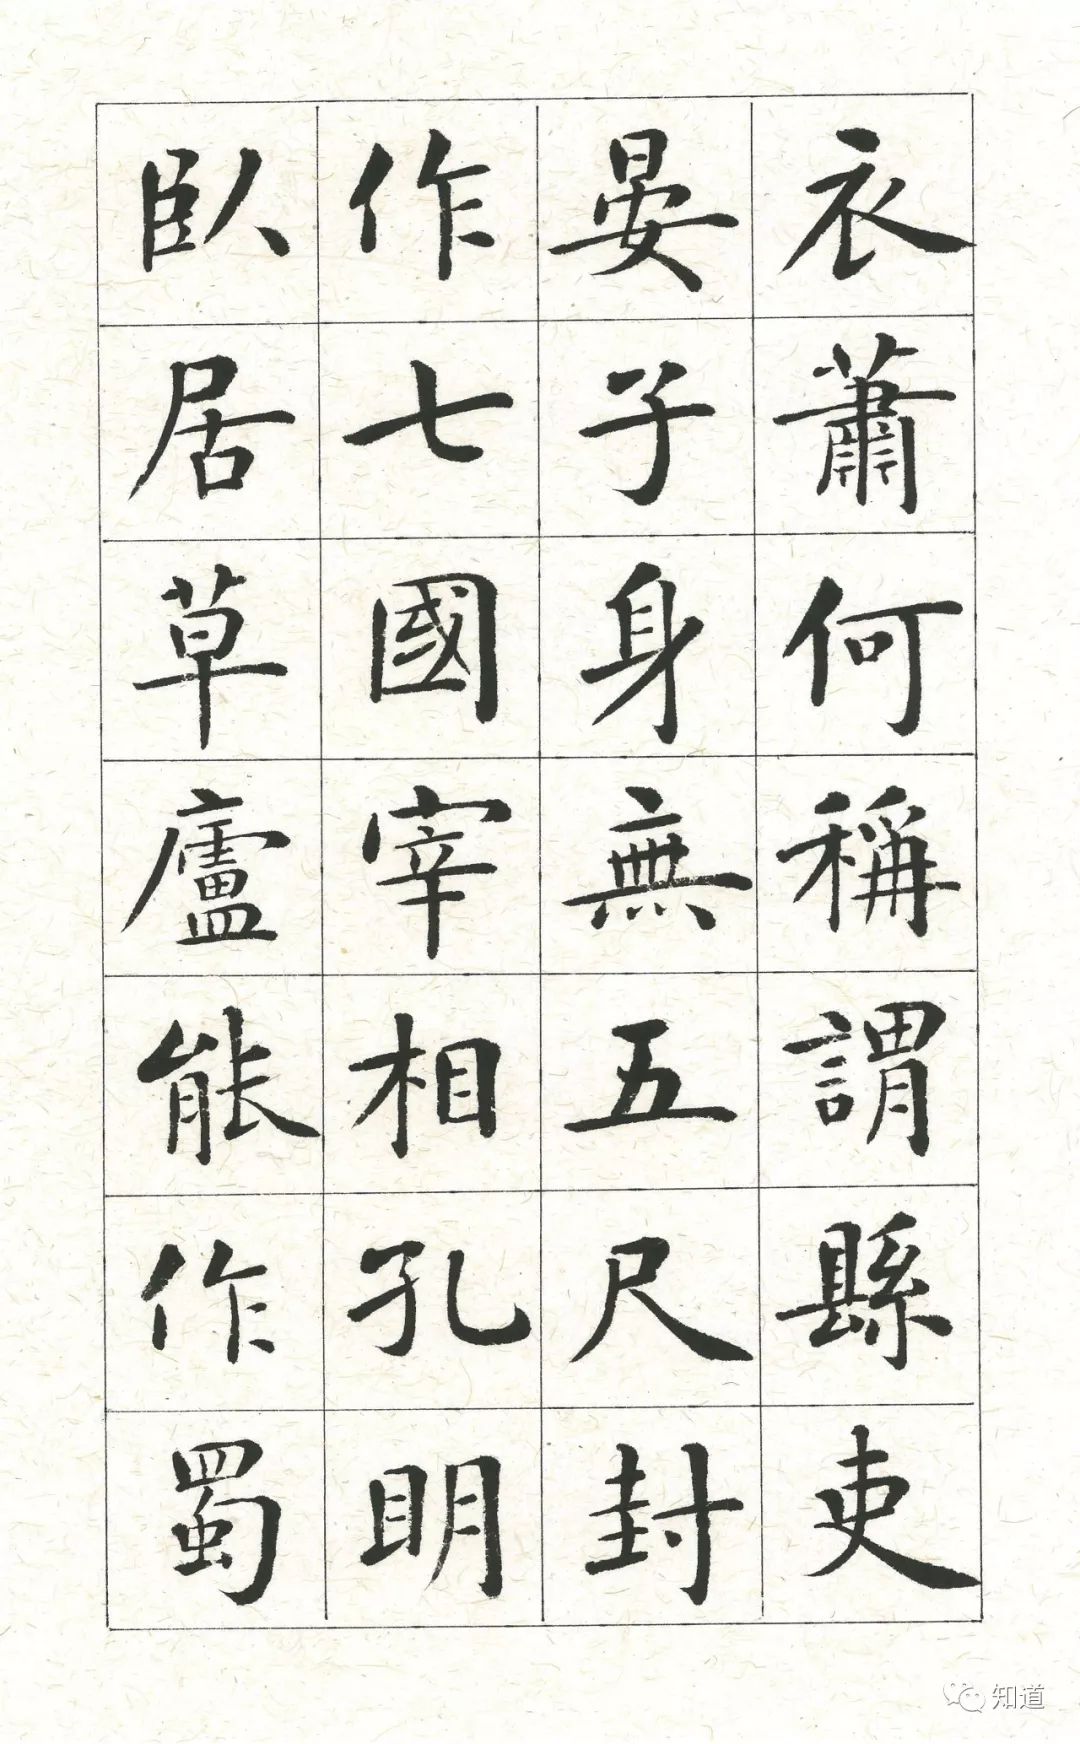 衣蕭何稱謂縣吏
晏子身無五尺封
作七國宰相孔明
臥居草廬能作蜀
知道